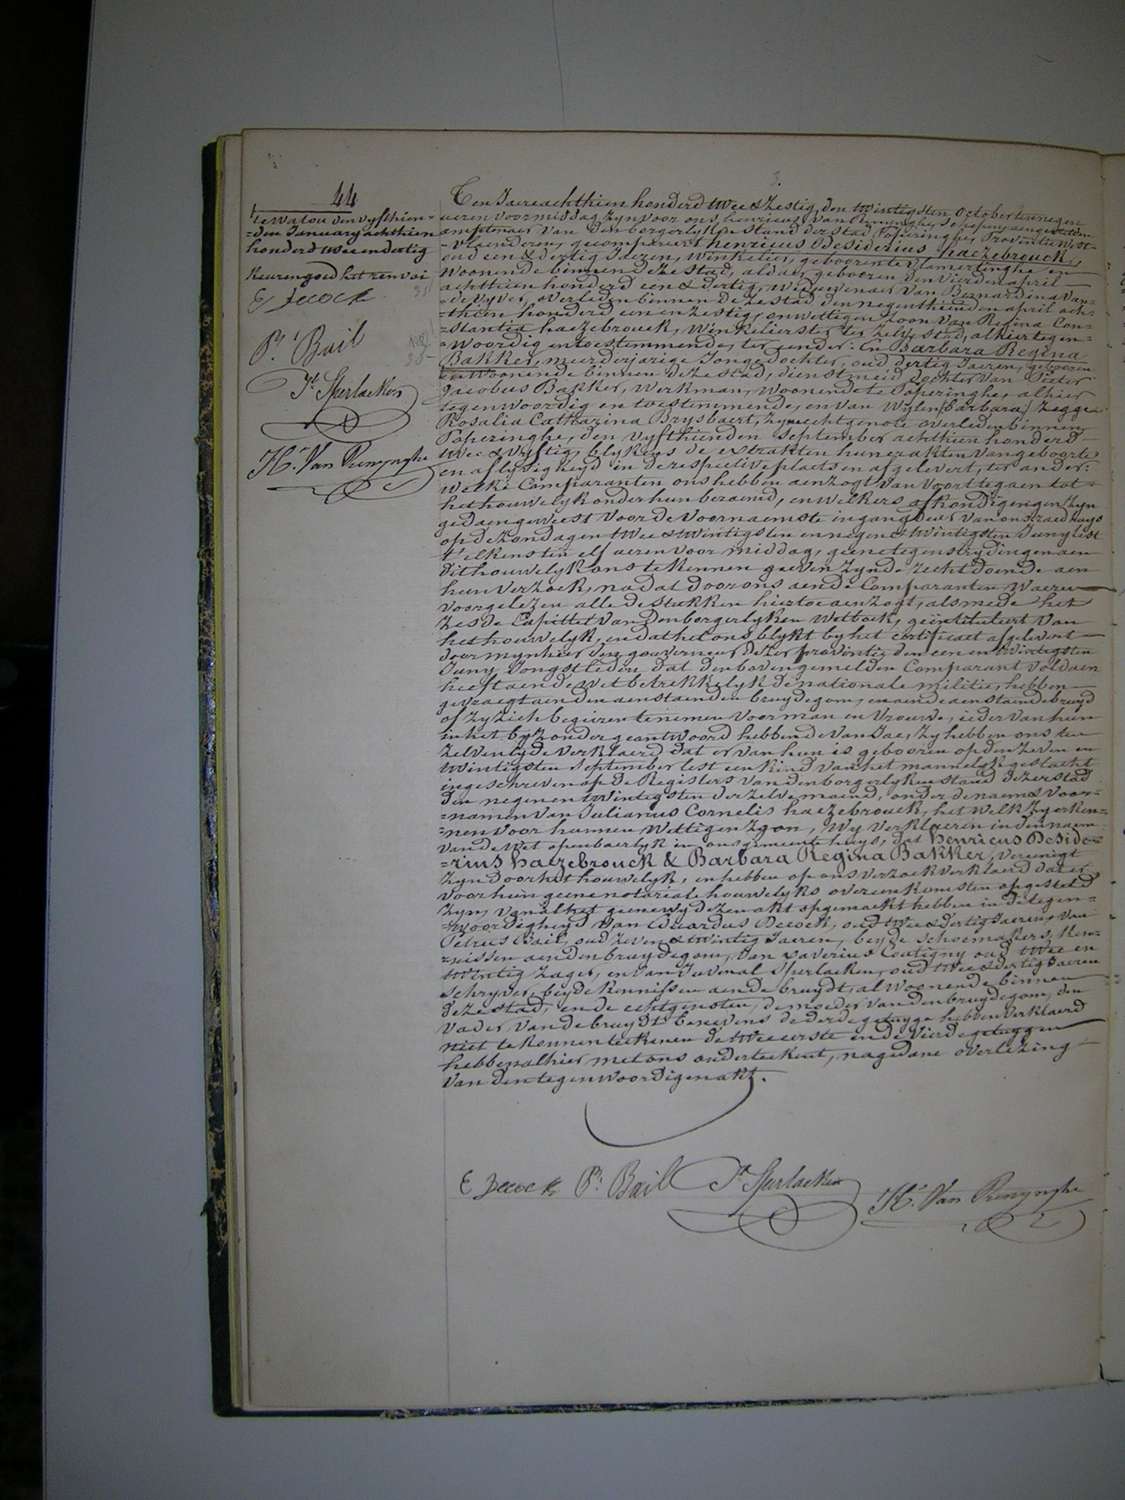 44
te Watou den vyfthien-
-den January achthien
honderd twee en dertig
keuren goed het renvoi
E Decock
Ps. Bail
Jl Sperlaeken
H. Van Renynghe
Ten Jaere achthien honderd twee & Zestig, den twintigsten October ten negen
ueren voormiddag zyn voor ons, henricus Van Renynghe, Schepene aengestelden
amptenaer van den borgerlyken stand der stad Poperinghe, Provintie West-
-Vlaenderen, gecompareert henricus Desiderius haezebrouck,
oud een & dertig Jaeren, Winkelier, geboren te Vlamertinghe en
woonende binnen deze stad, aldaer geboren den vierden april
achthien honderd een & dertig, Weduwenaer van Bernardina Van-
-de Vyver, overleden binnen deze stad den negenthienden april ach-
-thien honderd een en zestig, en wettigen zoon van Regina Con-
-stantia haezebrouck, Winkelierster ter zelve stad, alhier tegen-
-woordig en toestemmende, ter eender: En Barbara Regina
Bakker, meerderjarige Jonge dochter, oud dertig Jaeren, geboren
en woonende binnen deze stad, dienstmeid, dochter van Pieter
Jacobus Bakker, Werkman, woonende te Poperinghe, alhier
tegenwoordig en toestemmende, en van Wylen (Barbara) zegge
Rosalia Catharina Brysbaert, zyne echtgenote overleden binnen
Poperinghe, den vyfthienden September achthien honderd
twee & vyftig, blykens de extrakten hunner akten van geboorte
en aflyvigheyd in de respective plaetsen afgelevert, ter ander:
Welke Comparanten ons hebben aenzogt van voorttegaen tot
het houwelyk onder hun beraemd, en welkers afkondigingen zyn
gedaen geweest voor de voornaemste ingangdeur van ons raedhuys
op de zondagen twee & twintigsten en negen & twintigsten Juny lest
t'elkens ten elf ueren voor middag, geene tegenstrydingen aen
dit houwelyk ons te kennen geven zynde, recht doende aen
hun verzoek, na dat door ons aen de Comparanten waeren
voorgelezen alle de stukken hiertoe aenzogt, alsmede het
zesde Capittel van den borgerlyken Wetboek, geintituleert Van
het houwelyk, en dat het ons blykt by het certificaet afgelevert
door mynheer den gouverneur dezer provintie den een en twintigsten
Juny Jongstleden, dat den bovengemelden Comparant voldaen
heeft aen de wet betrekkelyk de nationale militie, hebben
gevraegt aen den aenstaenden bruydegom, en aen de aenstaende bruyd
of zy zich begeeren te nemen voor man en Vrouwe, ieder van hun
in het byzonder geantwoord hebbende van Jae, zy hebben ons ten
zelven tyde verklaerd dat er van hun is geboren op den zeven en
twintigsten September lest een kind van het mannelyk geslacht
ingeschreven op de Registers van den borgerlyken stand dezer stad
den negen en twintigsten derzelve maend, onder de naem & voor-
-namen van Julianus Cornelis haezebrouck, het welk zy erken-
-nen voor hunnen wettigen zoon, Wy verklaeren in den naem
van de wet openbaerlyk in ons gemeente huys, dat henricus Deside-
-rius haezebrouck & Barbara Regina Bakker, vereenigt
zyn door het houwelyk, en hebben op ons verzoek verklaerd dat er
voor hun geene notariale houwelyks overeenkomsten opgesteld
zyn, van al het geene wy dezen akt opgemaekt hebben in de tegen-
-woordigheyd van Eduardus Decock, oud twee & dertig Jaeren, van
Petrus Bail, oud zeven & twintig Jaeren, beyde schoenmakers, Ken-
-nissen aen den bruydegom, van Xaverius Coutigny oud twee en
twintig, zager, en van Juvenal Sperlaeken, oud twee & dertig Jaeren
schryver, beyde kennissen aen de bruydt, al woonende binnen
deze stad, en de echtgenoten, de moeder van den bruydegom, den
vader van de bruydt benevens de derde getuyge hebben verklaerd
niet te konnen teekenen de twee eerste en de vierde getuygen
hebben alhier met ons onderteekent, na gedane overlezing
van den tegenwoordigen akt.
E Decock Ps. Bail Jl Sperlaeken
H. Van Renynghe